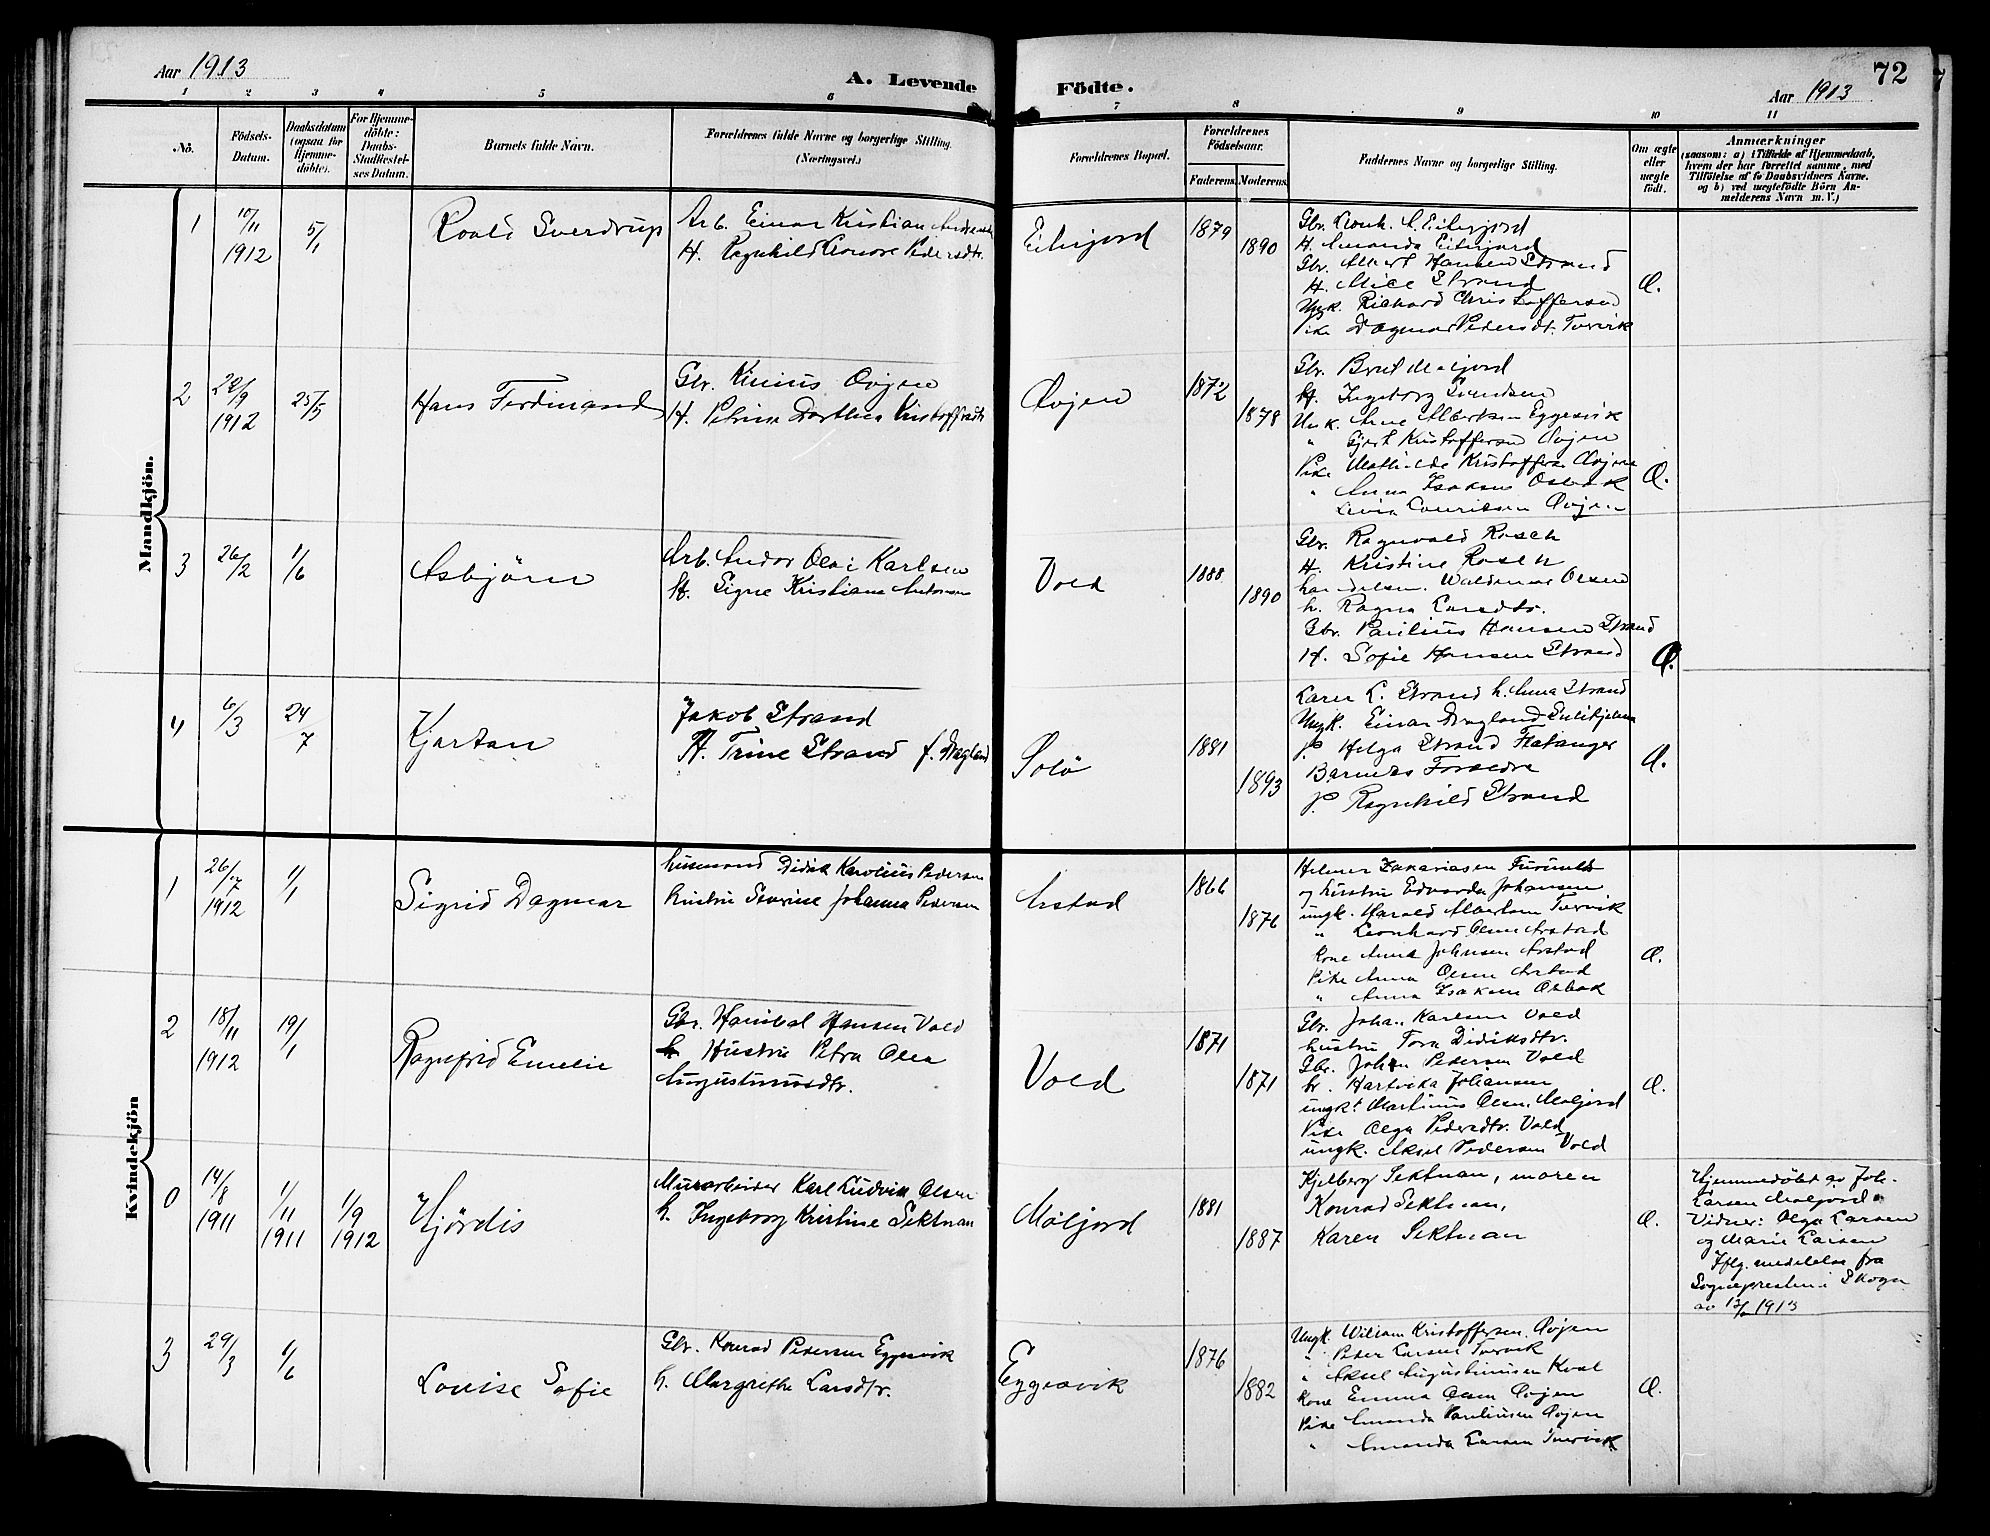 Aar 1913
A. Levende
Födte.
Aar 1913
72
1 2 3 4 5 6 7 8 9 10 11
No.
Födsels-
Datum.
Daabsdatum
(ogsaa for
Hjemme-
döbte).
For Hjemme-
döbte:
Daabs-
Stadfæstel-
ses Datum.
Barnets fulde Navn.
Forældrenes fulde Navne og borgerlige Stilling.
(Næringsvei.)
Forældrenes Bopæl.
Forældrenes
Födselsaar.
Faderens. Moderens.
Faddernes Navne og borgerlige Stilling.
Om ægte
eller
uægte
født.
Anmærkninger
(saasom: a) i Tilfælde af Hjemmedaab,
hvem der har forrettet samme, med
Tilföielse af to Daabsvidners Navne,
og b) ved uægtefödte Börn An-
melderens Navn m. V.)
Mandkjön.
1
10/11
1912
5/1
Roald Sverdrup
Arb. Einar Kristian
H. Ragnhild Leonore Pedersdtr.
Eiterjord
1879
1890
Gbr. Leonh. A. Eiterjord
H. Amanda Eiterjord
Gbr. Albert Hansen Strand
H. Alice Strand
Ungk. Richard Christoffersen
Pike Dagmar Pedersdt. Tuvvik
Æ.
2
22/9
1912
25/5
Hans Ferdinand
Gbr. Kinius Øvjen
H. Petrine Dorthea Kristoffdtr
Øvjen
1872
1878
Gbr. Brut Meljord
H. Ingeborg Svendsen
Ungk. Arne Albertsen Eggesvik
" Gjert Kristoffersen Øvjen
Pike Mathilde Kristoffers. Øvjen
" Anna Isaksen Osbak
Livia Lauritsen Øvjen
Æ.
3
26/2
1/6
Asbjörn
Arb. Andor Olai Karlsen
H. Signe Kristiane Antonsen
Vold
1888
1890
Gbr. Ragnvald Rosch
H. Kristine Rosch
handelsm. Waldemar Olsen
h. Ragna Larsdtr.
Gbr. Paulius Hansen Strand
H. Sofie Hansen Strand
Æ.
4
6/3
24/7
Kjartan
Jakob Strand
H. Trine Strand f. Dragland
Solö
1881
1893
Karen L. Strand h. Anna Strand
Ungk. Einar Dragland Sulitjelma
P. Helga Strand Flatanger
Barnets Foreldre
P. Ragnhild Strand
Æ.
Kvindekjön
1
26/
1912
1/1
Sigrid Dagmar
husmand Didrik Karolius Pedersen
hustru Severine Johanna Pedersen
Arstad
1866
1876
Helmer Zakariasen
og hustru Edvarda Johansen
ungk. Harald Albertsen Tuvvik
" Leonhard Olsen Arstad
Kone Anna Johnsen Arstad
Pike Anna Olsen Arstad
" Anna Isaksen Osbak
Æ.
2
18/11
1912
19/1
Ragnfrid Emelie
Gbr. Hanibal Hansen Vold
Hustru Petra Olea
Augustinusdtr.
Vold
1871
1871
Gbr. Johan Karlsen Vold
hustru Tora Didiksdtr.
Gbr. Johan Pedersen Vold
h. Hartvika Johansen
ungk. Martinus Olsen Meljord
Pike Olga Pedersdtr. Vold
ungk. Aksel Pedersen Vold
Æ.
0
14/8
1911
1/11
1911
1/9
1912
Hjördis
Murarbeider Karl Ludvik Olsen
h. Ingeborg Kristine Sektnan
Meljord
1881
1887
Kjelberg Sektnan, moren
Konrad Sektnan,
Karen Sektnan
Æ.
Hjemmedöbt av Joh.
Larsen Meljord.
Vidner: Olga Larsen
og Marie Larsen
Iflg. meddelelse fra
Sogneprestens i Skogn
av 1913
3
29/3
1/6
Louise Sofie
Gbr. Konrad Pedersen Eggesvik
h. Margrethe Larsdtr.
Eggesvik
1876
1882
Ungk. Wiliam Kristoffersen Øvjen
" Peder Larsen Tuvvik
" Aksel Augustinussen Kval
Kone Emma Olsen Øvjen
Pike Amanda Paulinsen Øvjen
" Amanda Larsen Tuvvik
Æ.